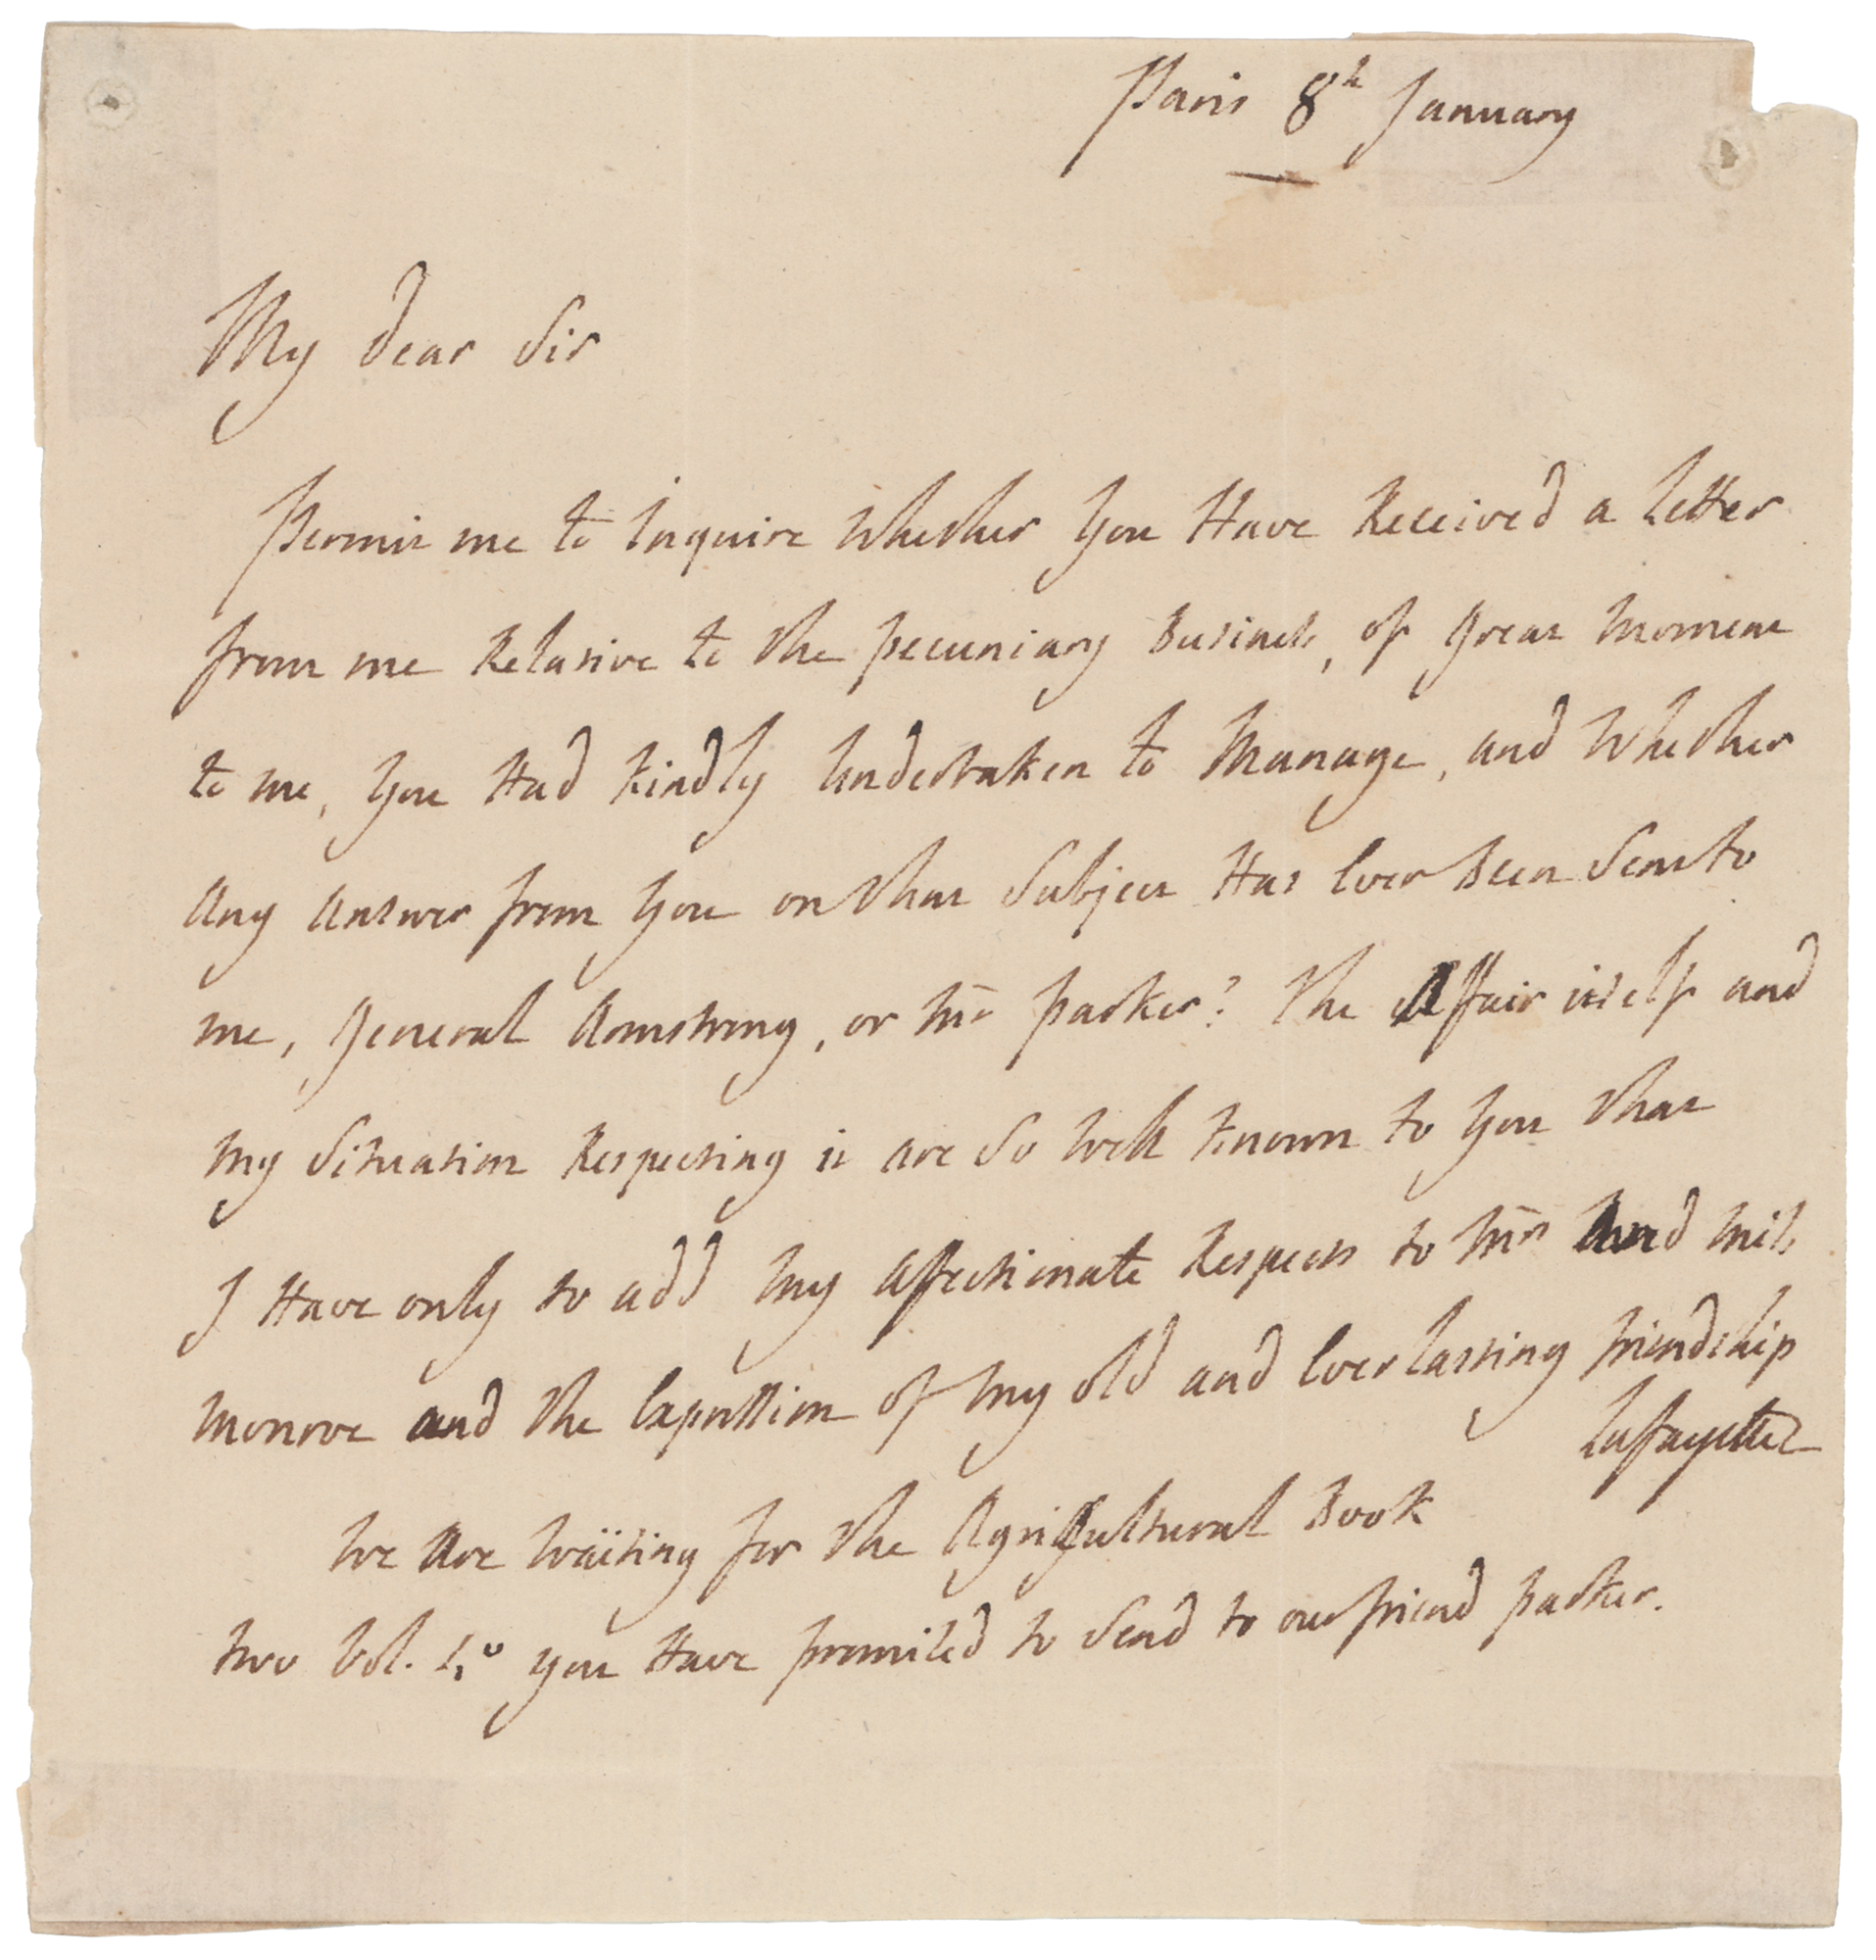 Paris 8h January
My dear Sir
Permit me to Inquire Whether You Have Received a Letter
from me Relative to the pecuniary Business, of great Moment
to me, You Had Kindly Undertaken to Manage, and Whether
Any Answer from You on that Subject Has Ever Been Sent to
me, General Armstrong, or Mr parker? The Affair itself and
My Situation Respecting it are So Well Known to You that
I Have only to add My Affectionate Respects to Mrs and Miss
Monroe and the Expression of My old and Everlasting friendship
Lafayette
We Are Waïting for the Agricultural Book
two Vol. 4o you Have promised to Send to our friend parker.